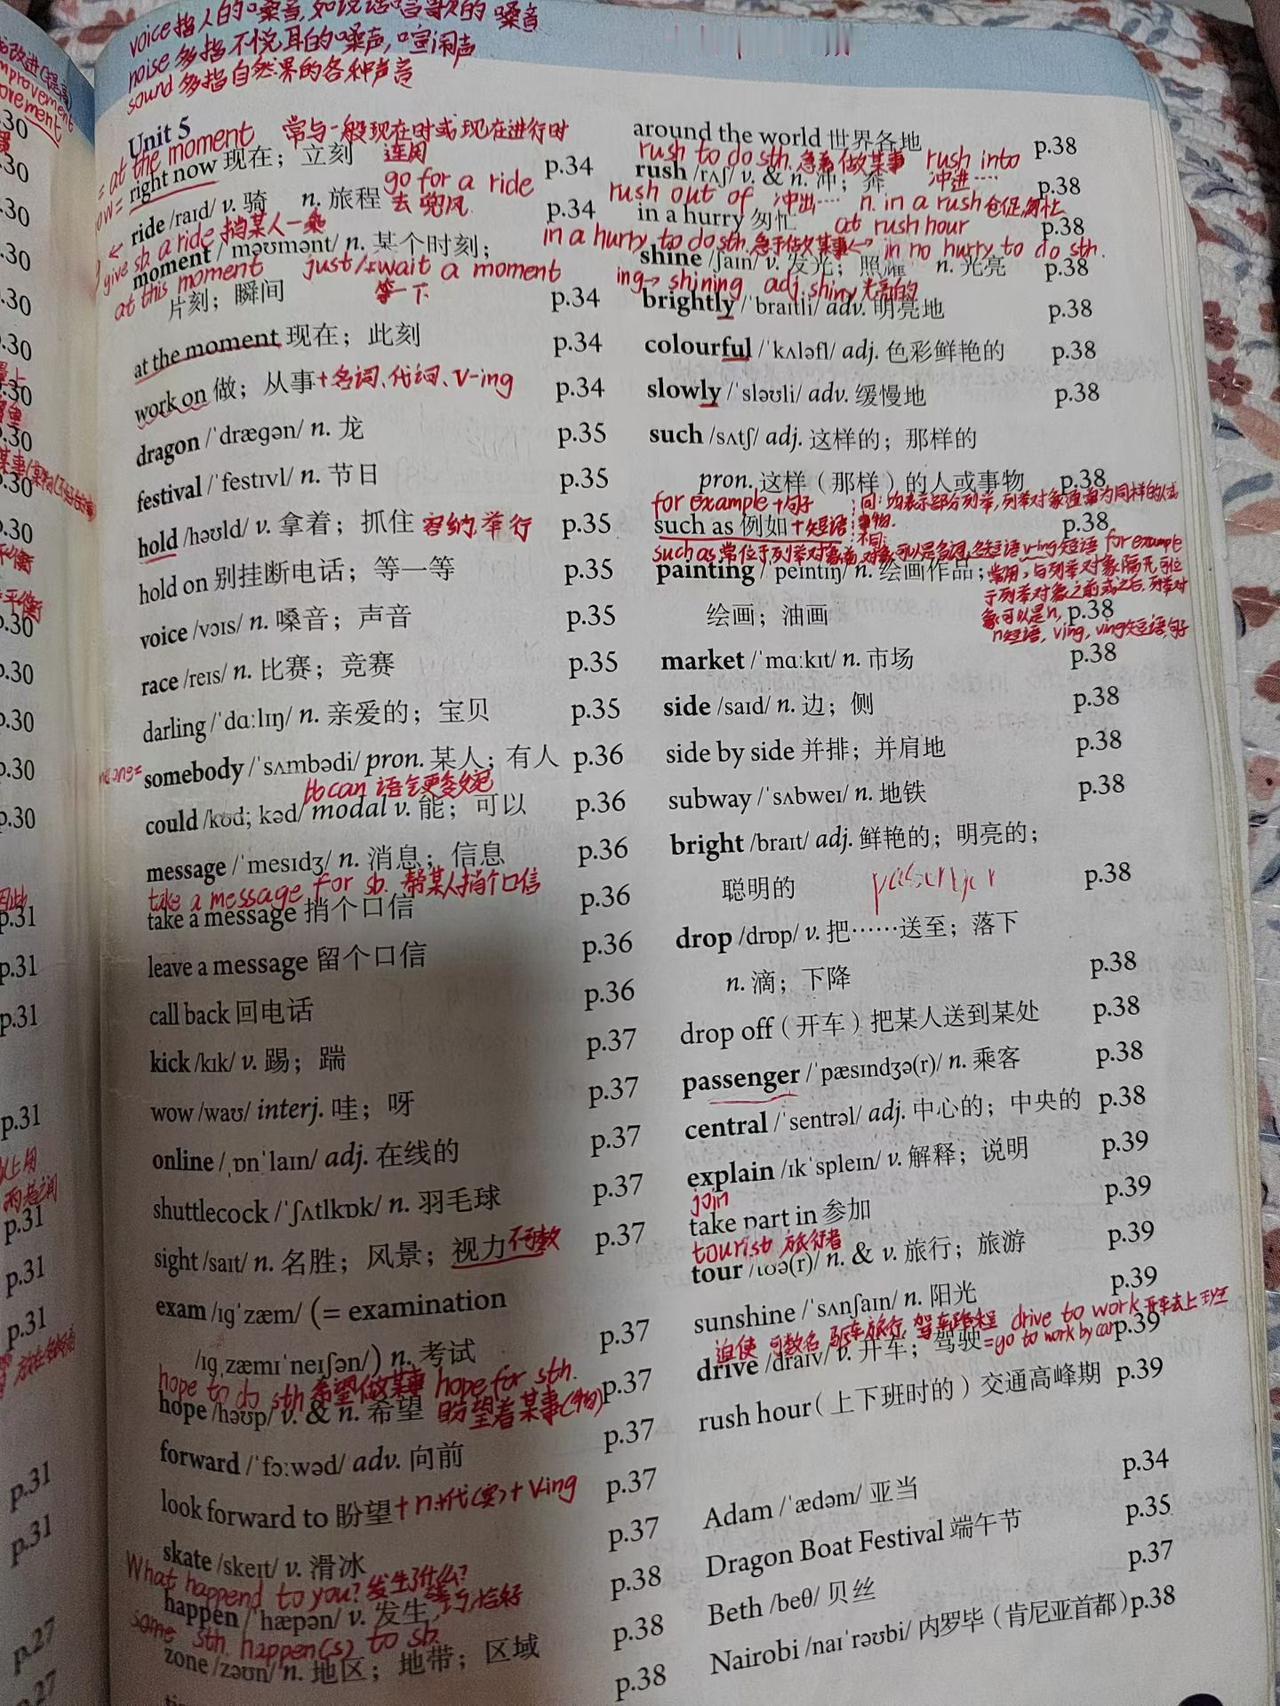 voice 指人的嗓音,如说话唱歌的嗓音
noise 多指不悦耳的噪声,喧闹声
sound 多指自然界的各种声音
Unit 5
= at the moment 常与一般现在时或现在进行时
连用
right now 现在；立刻 p.34
go for a ride
ride /raɪd/ v. 骑 n. 旅程 去兜风 p.34
give sb a ride 捎某人一乘
moment /ˈməʊmənt/ n. 某个时刻；
at this moment just/wait a moment
等一下
片刻；瞬间 p.34
at the moment 现在；此刻 p.34
work on 做；从事+名词、代词、v-ing p.34
dragon /ˈdræɡən/ n. 龙 p.35
festival /ˈfestɪvl/ n. 节日 p.35
hold /həʊld/ v. 拿着；抓住 容纳.举行 p.35
hold on 别挂断电话；等一等 p.35
voice /vɔɪs/ n. 嗓音；声音 p.35
race /reɪs/ n. 比赛；竞赛 p.35
darling /ˈdɑːlɪŋ/ n. 亲爱的；宝贝 p.35
somebody /ˈsʌmbədi/ pron. 某人；有人 p.36
比can 语气更委婉
could /kʊd; kəd/ modal v. 能；可以 p.36
message /ˈmesɪdʒ/ n. 消息；信息 p.36
take a message for sb. 帮某人捎个口信
take a message 捎个口信 p.36
leave a message 留个口信 p.36
call back 回电话 p.36
kick /kɪk/ v. 踢；踹 p.37
wow /waʊ/ interj. 哇；呀 p.37
online /ˌɒnˈlaɪn/ adj. 在线的 p.37
shuttlecock /ˈʃʌtlkɒk/ n. 羽毛球 p.37
sight /saɪt/ n. 名胜；风景；视力 不可数 p.37
exam /ɪɡˈzæm/ (= examination
/ɪɡˌzæmɪˈneɪʃən/) n. 考试 p.37
hope to do sth 希望做某事 hope for sth.
hope /həʊp/ v. & n. 希望 盼望着某事(物) p.37
forward /ˈfɔːwəd/ adv. 向前 p.37
look forward to 盼望+n.+代(宾)+Ving p.37
skate /skeɪt/ v. 滑冰 p.37
What happend to you? 发生了什么?
happen /ˈhæpən/ v. 发生, 碰巧,恰好 p.38
some sth. happen(s) to sb.
zone /zəʊn/ n. 地区；地带；区域 p.38
p.38
around the world 世界各地 p.38
rush to do sth. 急着做某事 rush into
rush /rʌʃ/ v. & n. 冲；奔 冲进···· p.38
rush out of 冲出···· n. in a rush 仓促,匆忙
in a hurry 匆忙 at rush hour p.38
in a hurry to do sth. 急于做某事 ↔ in no hurry to do sth.
shine /ʃaɪn/ v. 发光；照耀 n. 光亮 p.38
ing→ shining adj. shiny 光亮的
brightly /ˈbraɪtli/ adv. 明亮地 p.38
colourful /ˈkʌləfl/ adj. 色彩鲜艳的 p.38
slowly /ˈsləʊli/ adv. 缓慢地 p.38
such /sʌtʃ/ adj. 这样的；那样的
pron. 这样（那样）的人或事物 p.38
for example +句子 同: 均表示部分列举,列举对象通常为同样的人或
such as 例如+短语 事物. p.38
不同:
such as 常位于列举对象前,对象可以是名词,名短语 v-ing短语 for example
painting /ˈpeɪntɪŋ/ n. 绘画作品； 常用, 与列举对象隔开,可位
于列举对象之前或之后, 列举对
绘画；油画 象可以是n, p.38
n短语, ving, ving短语,句子
market /ˈmɑːkɪt/ n. 市场 p.38
side /saɪd/ n. 边；侧 p.38
side by side 并排；并肩地 p.38
subway /ˈsʌbweɪ/ n. 地铁 p.38
bright /braɪt/ adj. 鲜艳的；明亮的；
聪明的 p.38
drop /drɒp/ v. 把……送至；落下
n. 滴；下降 p.38
drop off（开车）把某人送到某处 p.38
passenger /ˈpæsɪndʒə(r)/ n. 乘客 p.38
central /ˈsentrəl/ adj. 中心的；中央的 p.38
explain /ɪkˈspleɪn/ v. 解释；说明 p.39
join
take part in 参加 p.39
tourist 旅行者
tour /tʊə(r)/ n. & v. 旅行；旅游 p.39
sunshine /ˈsʌnʃaɪn/ n. 阳光 p.39
迫使 可数名 驱车旅行, 驾车路程 drive to work 开车去上班
drive /draɪv/ v. 开车；驾驶 =go to work by car p.39
rush hour（上下班时的）交通高峰期 p.39
Adam /ˈædəm/ 亚当 p.34
Dragon Boat Festival 端午节 p.35
Beth /beθ/ 贝丝 p.37
Nairobi /naɪˈrəʊbi/ 内罗毕（肯尼亚首都） p.38